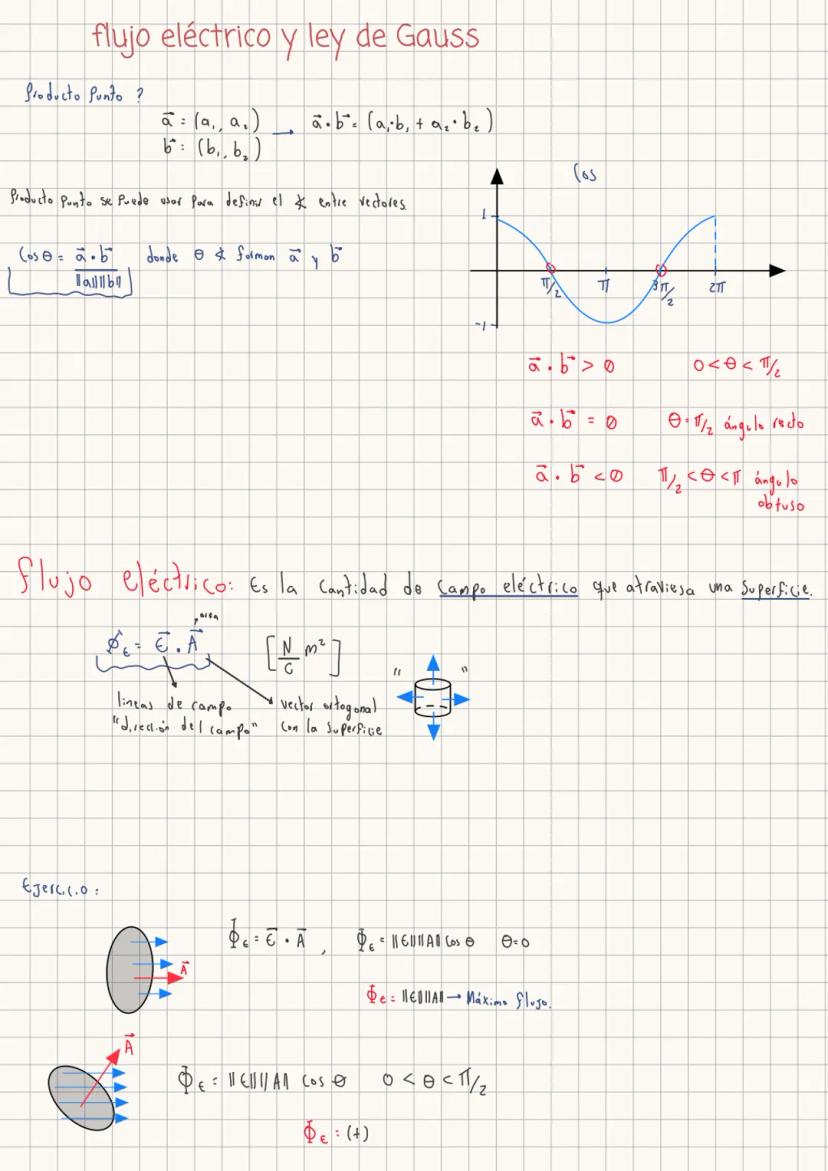 flujo eléctrico y ley de Gauss
Producto Punto ?
a⃗ = (a₁, a₂) → a⃗·b⃗ = (a₁·b₁ + a₂·b₂)
b⃗ : (b₁, b₂)
Cos
Producto Punto se puede usar para definir el ∡ entre vectores
1
Cosθ = a⃗·b⃗ / ||a||||b|| donde θ ∡ forman a⃗ y b⃗
π/2 π 3π/2 2π
-1
a⃗ · b⃗ > 0 0 < θ < π/2
a⃗ · b⃗ = 0 θ = π/2 ángulo recto
a⃗ · b⃗ < 0 π/2 < θ < π ángulo
obtuso
flujo eléctrico: Es la cantidad de campo eléctrico que atraviesa una superficie.
area
ϕ_ε = ε⃗ · A⃗ [N/C m²]
" "
lineas de campo
"dirección del campo"
vector ortogonal
con la superficie
Ejercicio:
Φ_ε = ε⃗ · A⃗ , Φ_ε = ||ε||||A|| cos θ θ=0
A⃗
Φ_e = ||ε||||A|| → Máximo flujo.
A⃗
Φ_ε = ||ε||||A|| cos θ 0 < θ < π/2
Φ_ε = (+)